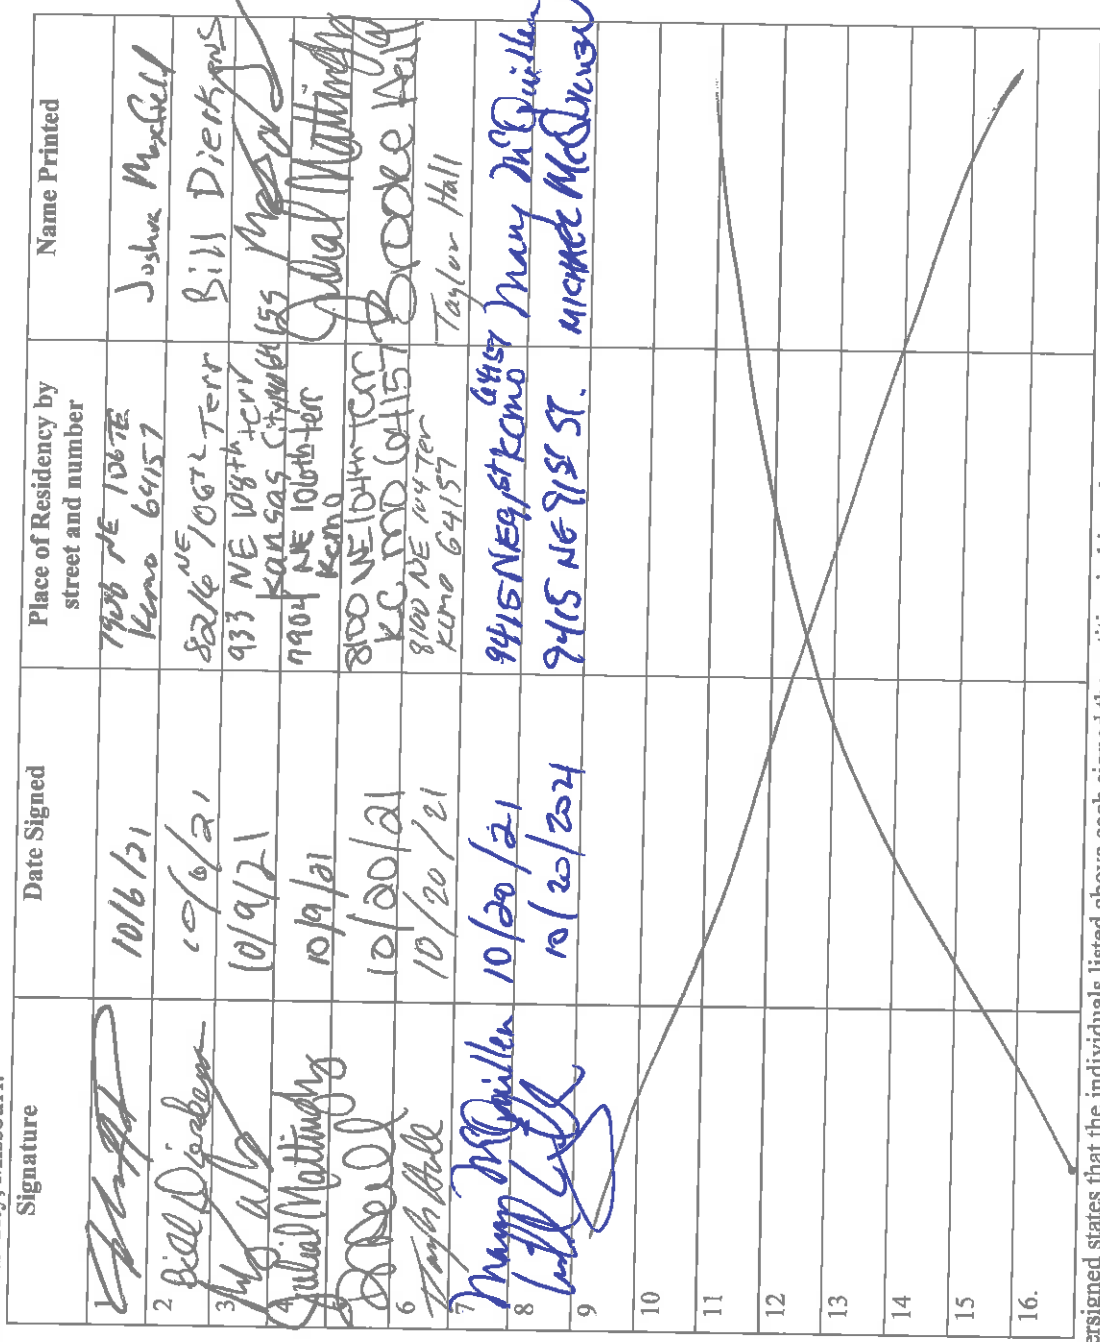 Signature Date Signed Place of Residency by street and number Name Printed
1 10/6/21 7908 NE 106 TE Kcmo 64157 Joshua Maxfield
2 Bill Dierkens 10/6/21 8216 NE 106TH Terr Bill Dierkens
3 10/9/21 933 NE 108th terr Kansas City
4 Julia Mattingly 10/9/21 7904 NE 106th terr Kcmo Mattingly
5 10/20/21 8100 NE 104th Terr K.C. MO 64157 Brooke Hall
6 Taylor Hall 10/20/21 8100 NE 104 Ter KCMO 64157 Taylor Hall
7 Mary McQuillen 10/20/21 9415 NE 91st KCMO 64157 Mary McQuillen
8 10/20/2021 9415 NE 91ST ST. MICHAEL
9
10
11
12
13
14
15
16.
ersigned states that the individuals listed above each signed